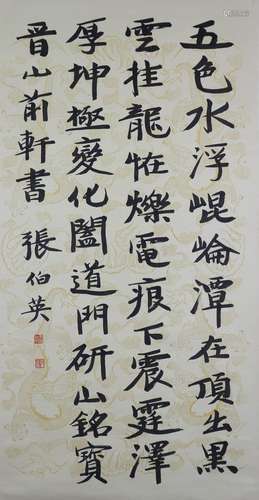 五色水浮崐崘潭在頂出黑
雲挂龍恠爍電痕下震霆澤
厚坤極變化闔道門研山銘寶
晉山前軒書 張伯英